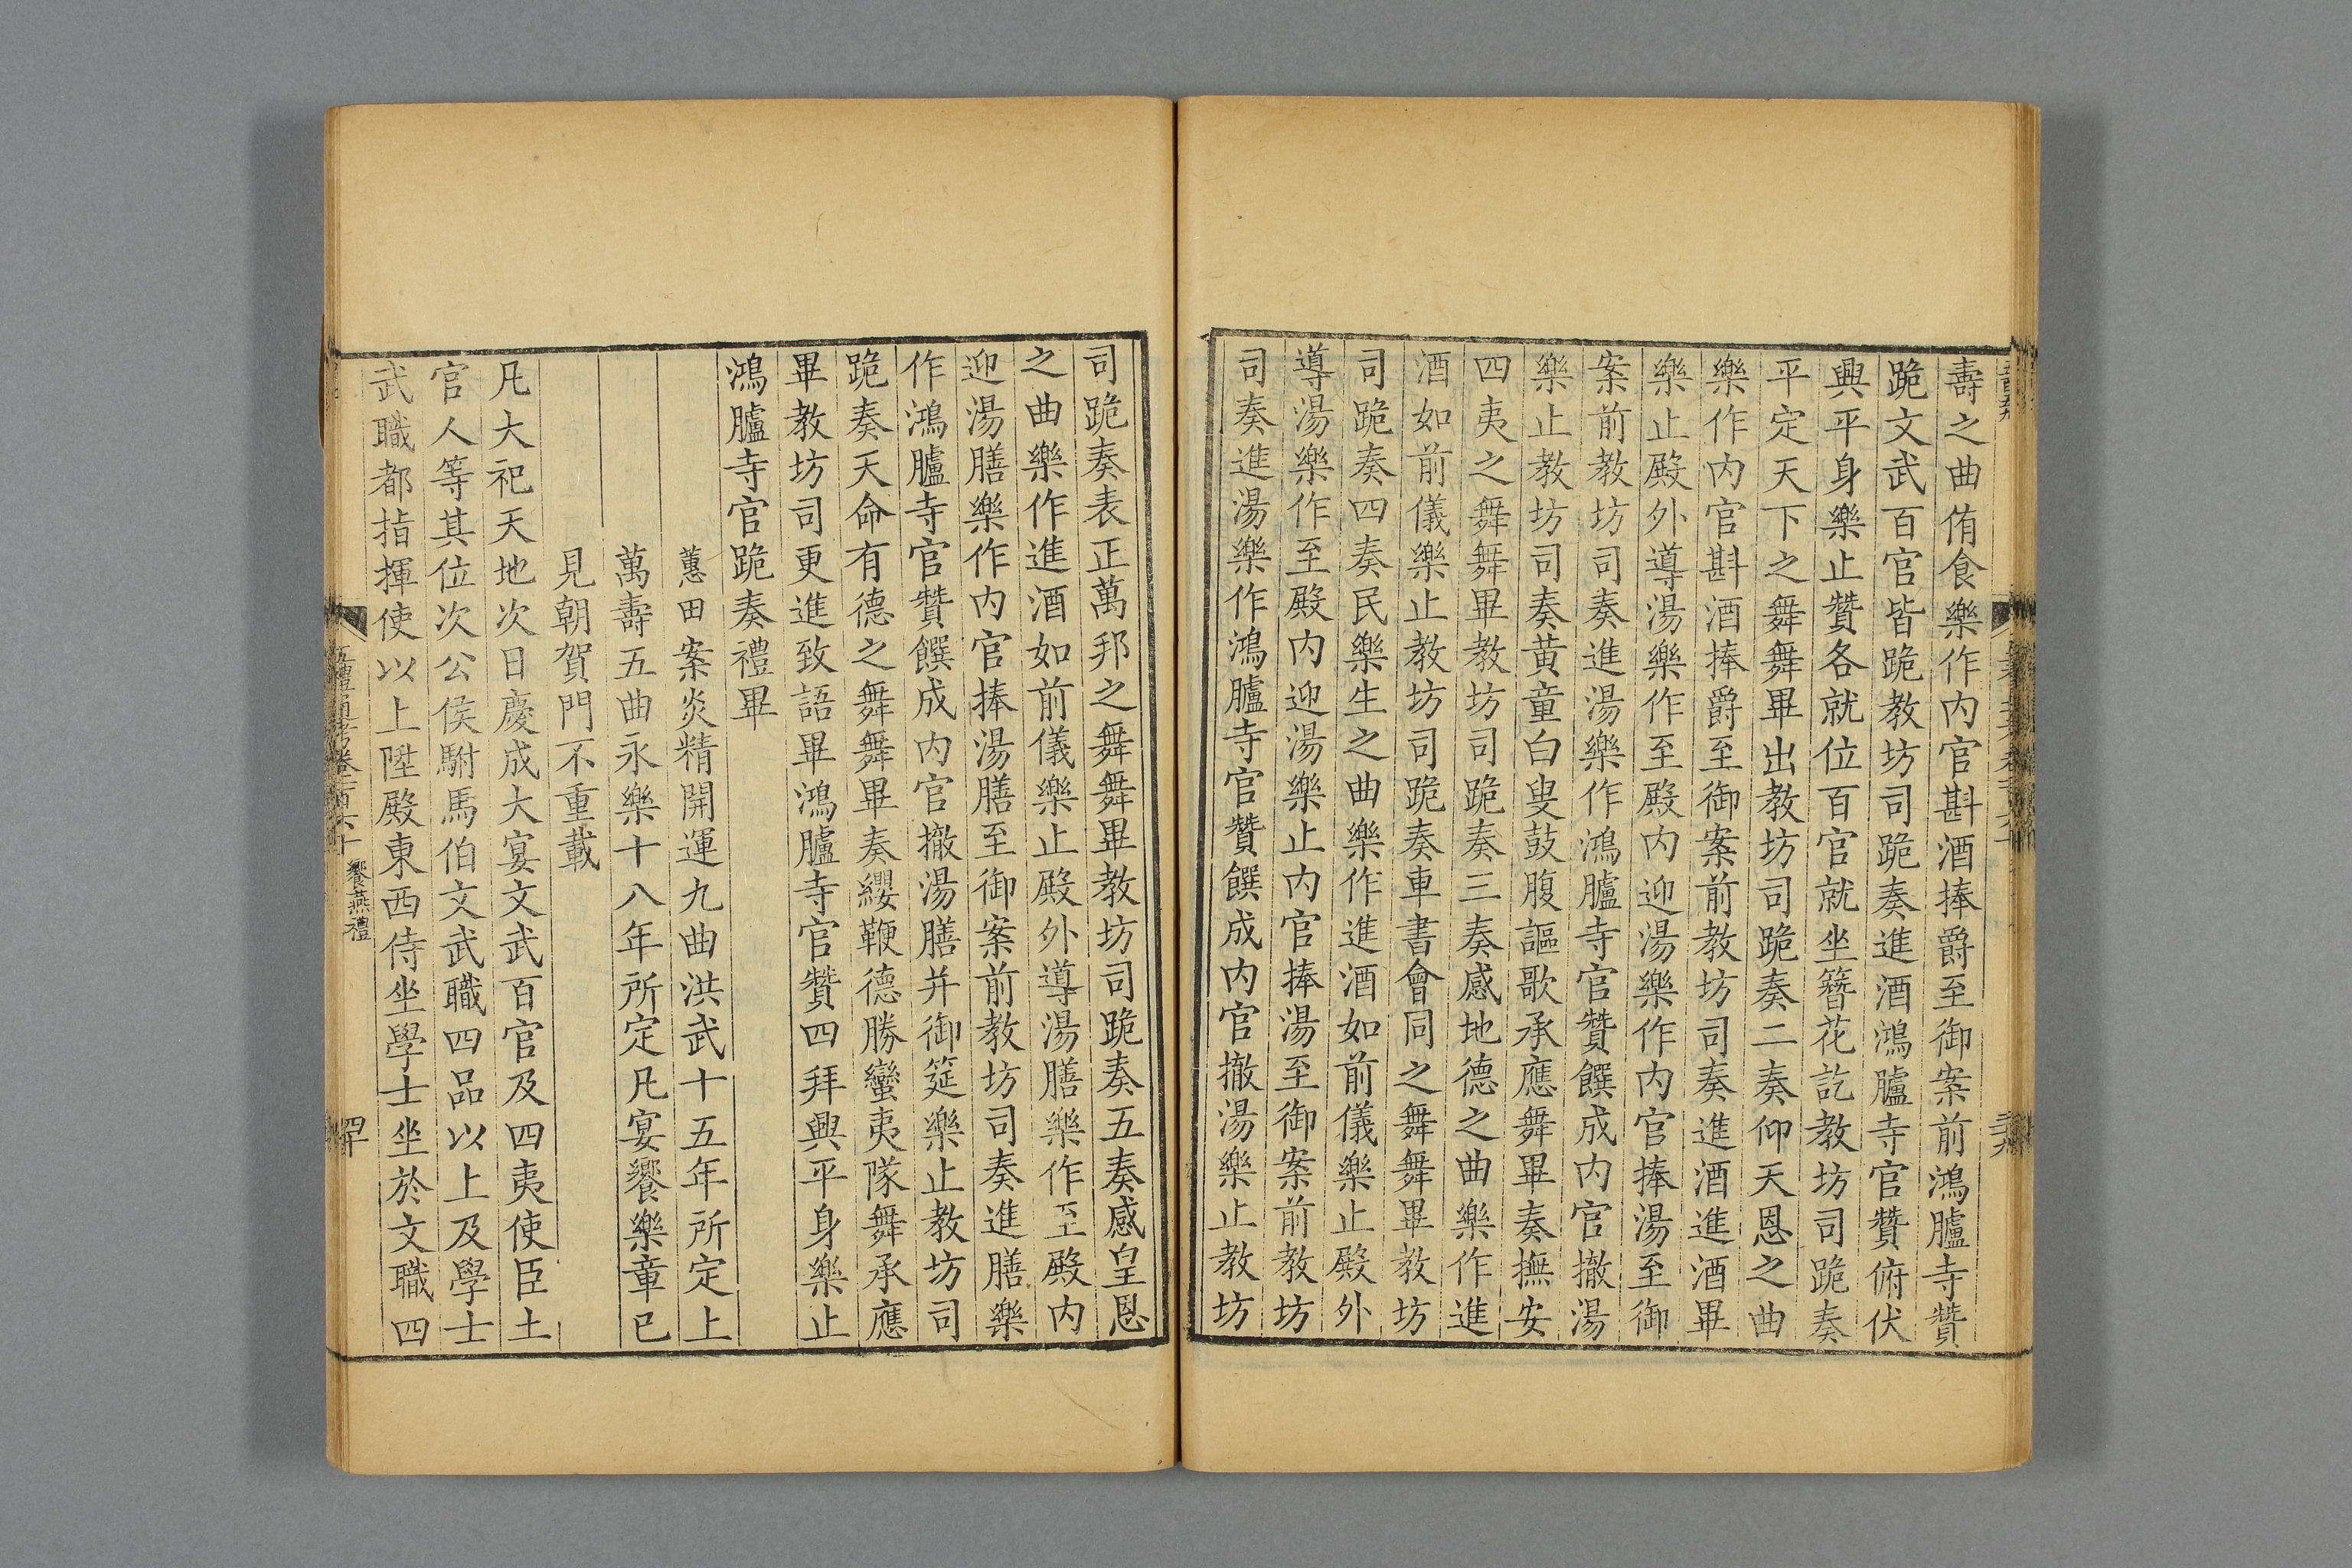 壽之曲侑食樂作内官斟酒捧爵至御案前鴻臚寺贊
跪文武百官皆跪教坊司跪奏進酒鴻臚寺官贊俯伏
興平身樂止贊各就位百官就坐簪花訖教坊司跪奏
平定天下之舞舞畢出教坊司跪奏二奏仰天恩之曲
樂作内官斟酒捧爵至御案前教坊司奏進酒進酒畢
樂止殿外導湯樂作至殿内迎湯樂作内官捧湯至御
案前教坊司奏進湯樂作鴻臚寺官贊饌成内官撤湯
樂止教坊司奏黄童白叟鼓腹謳歌承應舞畢奏撫安
四夷之舞舞畢教坊司跪奏三奏感地德之曲樂作進
酒如前儀樂止教坊司跪奏車書會同之舞舞畢教坊
司跪奏四奏民樂生之曲樂作進酒如前儀樂止殿外
導湯樂作至殿内迎湯樂止内官捧湯至御案前教坊
司奏進湯樂作鴻臚寺官贊饌成内官撤湯樂止教坊
司跪奏表正萬邦之舞舞畢教坊司跪奏五奏感皇恩
之曲樂作進酒如前儀樂止殿外導湯膳樂作至殿内
迎湯膳樂作内官捧湯膳至御案前教坊司奏進膳樂
作鴻臚寺官贊饌成内官撤湯膳并御筵樂止教坊司
跪奏天命有德之舞舞畢奏纓鞭德勝蠻夷隊舞承應
畢教坊司更進致語畢鴻臚寺官贊四拜興平身樂止
鴻臚寺官跪奏禮畢
蕙田案炎精開運九曲洪武十五年所定上
萬壽五曲永樂十八年所定凡宴饗樂章已
見朝賀門不重載
凡大祀天地次日慶成大宴文武百官及四夷使臣土
官人等其位次公侯駙馬伯文武職四品以上及學士
武職都指揮使以上陞殿東西侍坐學士坐於文職四
五禮通考卷一百六十 饗燕禮
四十